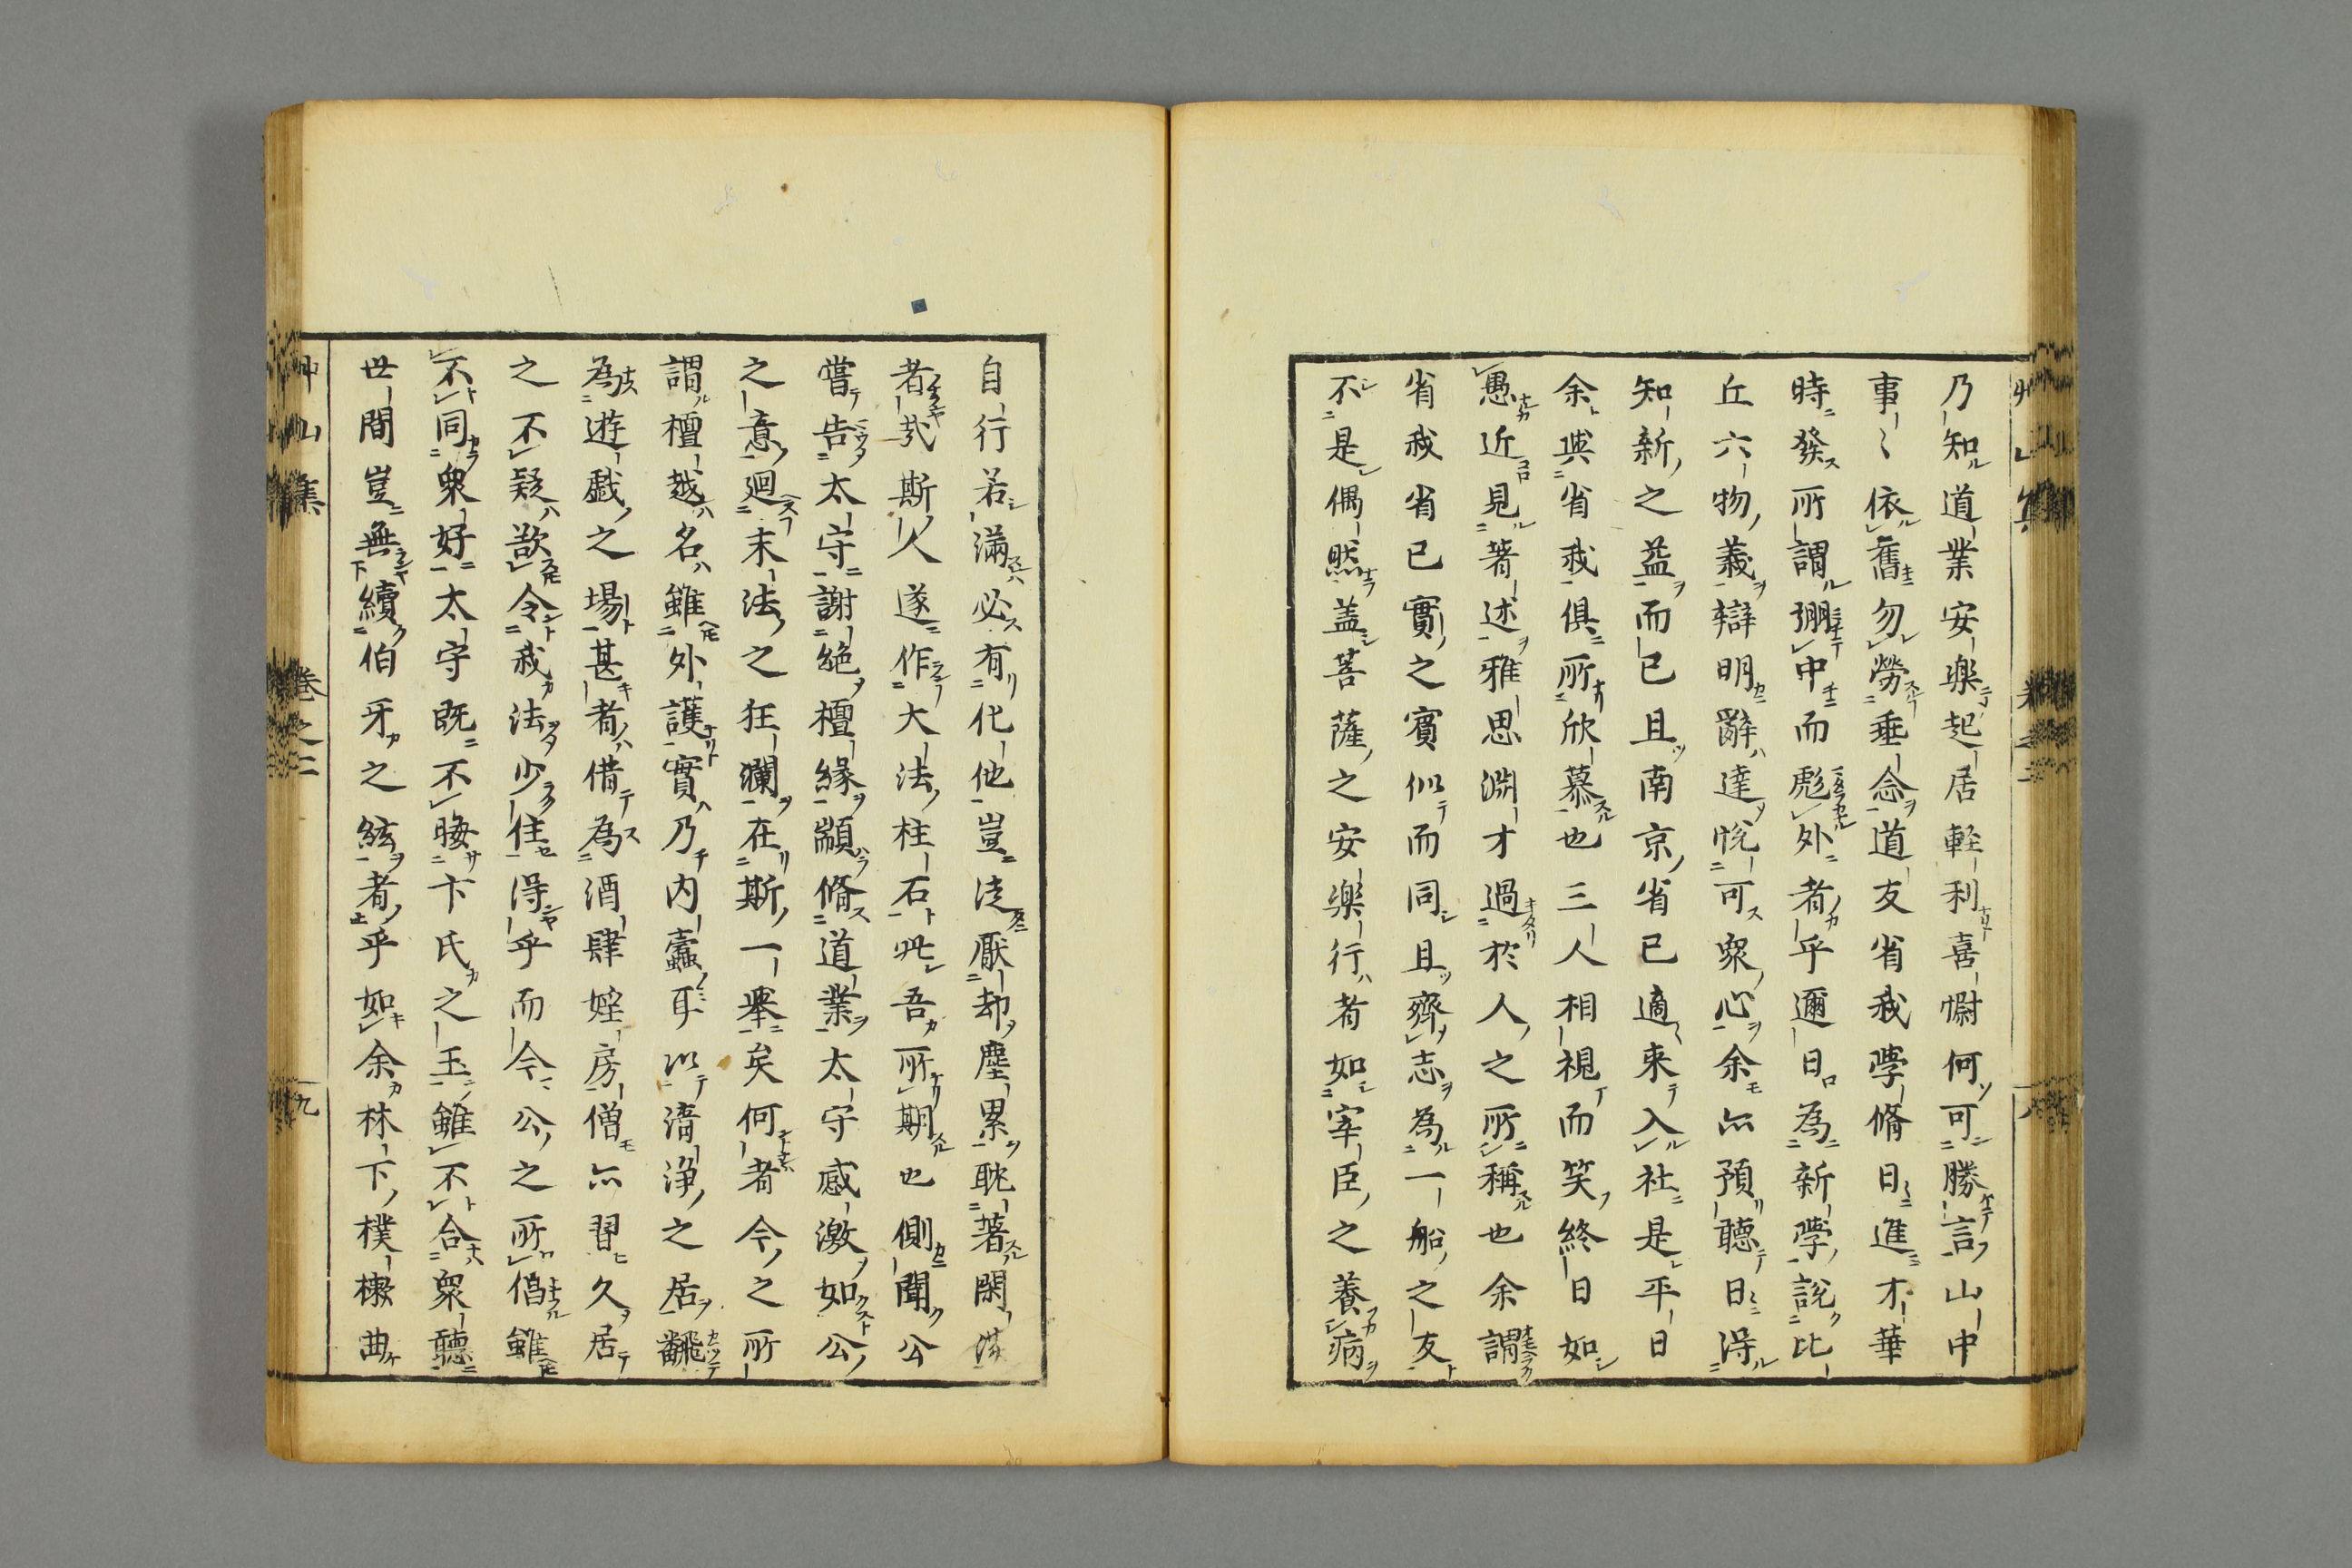 乃知道業安樂起居軽利喜慰何可勝言山中
事〻依舊勿勞垂念道友省我學脩日進才華
時發所謂弸中而彪外者乎邇日為新學說比
丘六物義辯明辭達悅可衆心余亦預聽日得
知新之益而已且南京省已適来入社是平日
余與省我俱所欣慕也三人相視而笑終日如
愚近見著述雅思淵才過於人之所稱也余謂
省我省已實之賓似而同且齊志為一船之友
不是偶然盖菩薩之安樂行者如宰臣之養病
自行若滿必有化他豈徒厭却塵累耽著閑
者哉斯人遂作大法柱石此吾所期也側聞公
嘗告太守謝絶檀緣顓脩道業太守感激如公
之意廻末法之狂瀾在斯一舉矣何者今之所
謂檀越名雖外護實乃内蠹耳以清淨之居翻
為遊戯之場甚者借為酒肆婬房僧亦習久居
之不疑欲令我法少住得乎而今公之所倡雖
不同衆好太守既不晦卞氏之玉雖不合衆聽
世間豈無續伯牙之絃者乎如余林下樸樕曲
艸山集 卷之二 九